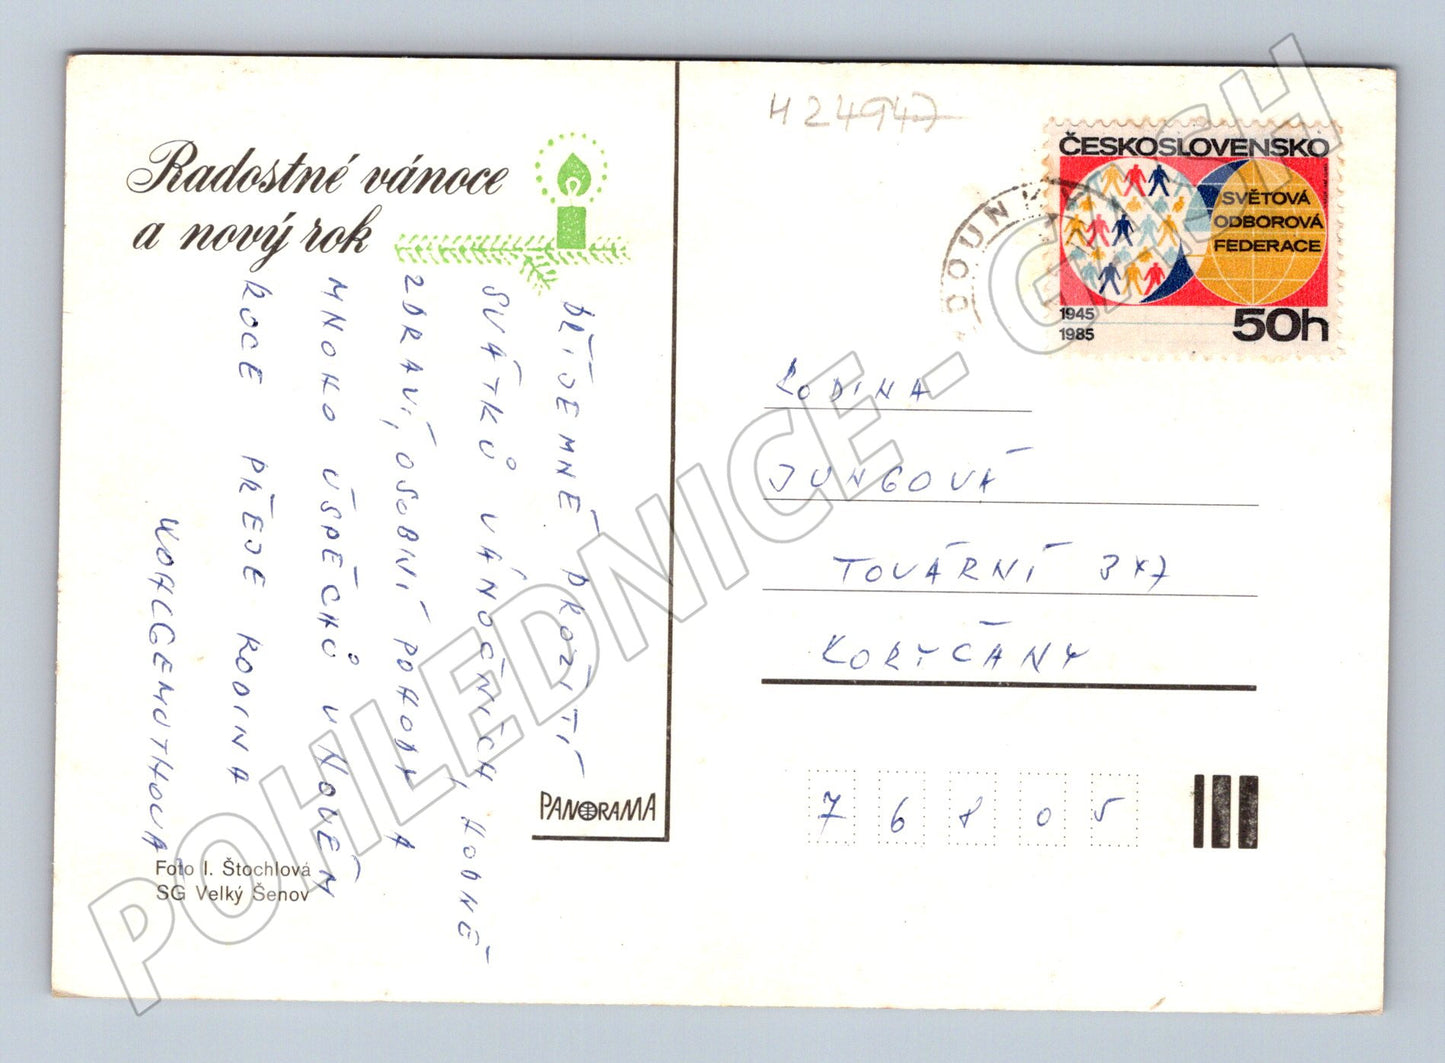 Radostné vánoce
a nový rok
PŘÍJEMNÉ PROŽITÍ
SVÁTKŮ VÁNOČNÍCH, HODNĚ
ZDRAVÍ, OSOBNÍ POHODY A
MNOHO ÚSPĚCHŮ V NOVÉM
ROCE PŘEJE RODINA
WOHLGEMUTHOVA
Foto I. Štochlová
SG Velký Šenov
PANORAMA
H 24947
ČESKOSLOVENSKO
SVĚTOVÁ
ODBOROVÁ
FEDERACE
1945
1985
50h
RODINA
JUNGOVÁ
TOVÁRNÍ 347
KORYČANY
76805
POHLEDNICE - GACH